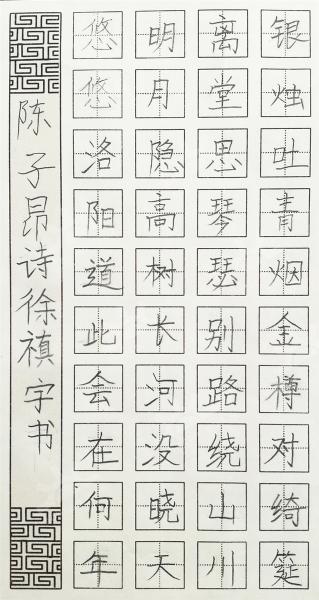 银烛吐青烟金樽对绮筵
离堂思琴瑟别路绕山川
明月隐高树长河没晓天
悠悠洛阳道此会在何年
陈子昂诗徐禛字书